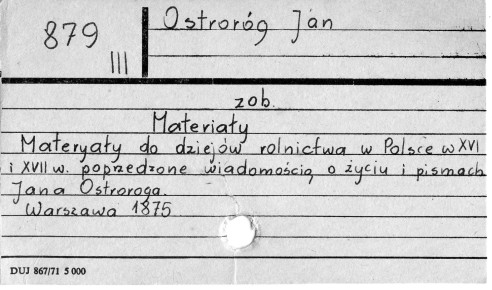 879
III
Ostroróg Jan
zob.
Materiały
Materyały do dziejów rolnictwa w Polsce w XVI
i XVII w. poprzedzone wiadomością o życiu i pismach
Jana Ostroroga.
Warszawa 1875
DUJ 867/71 5 000